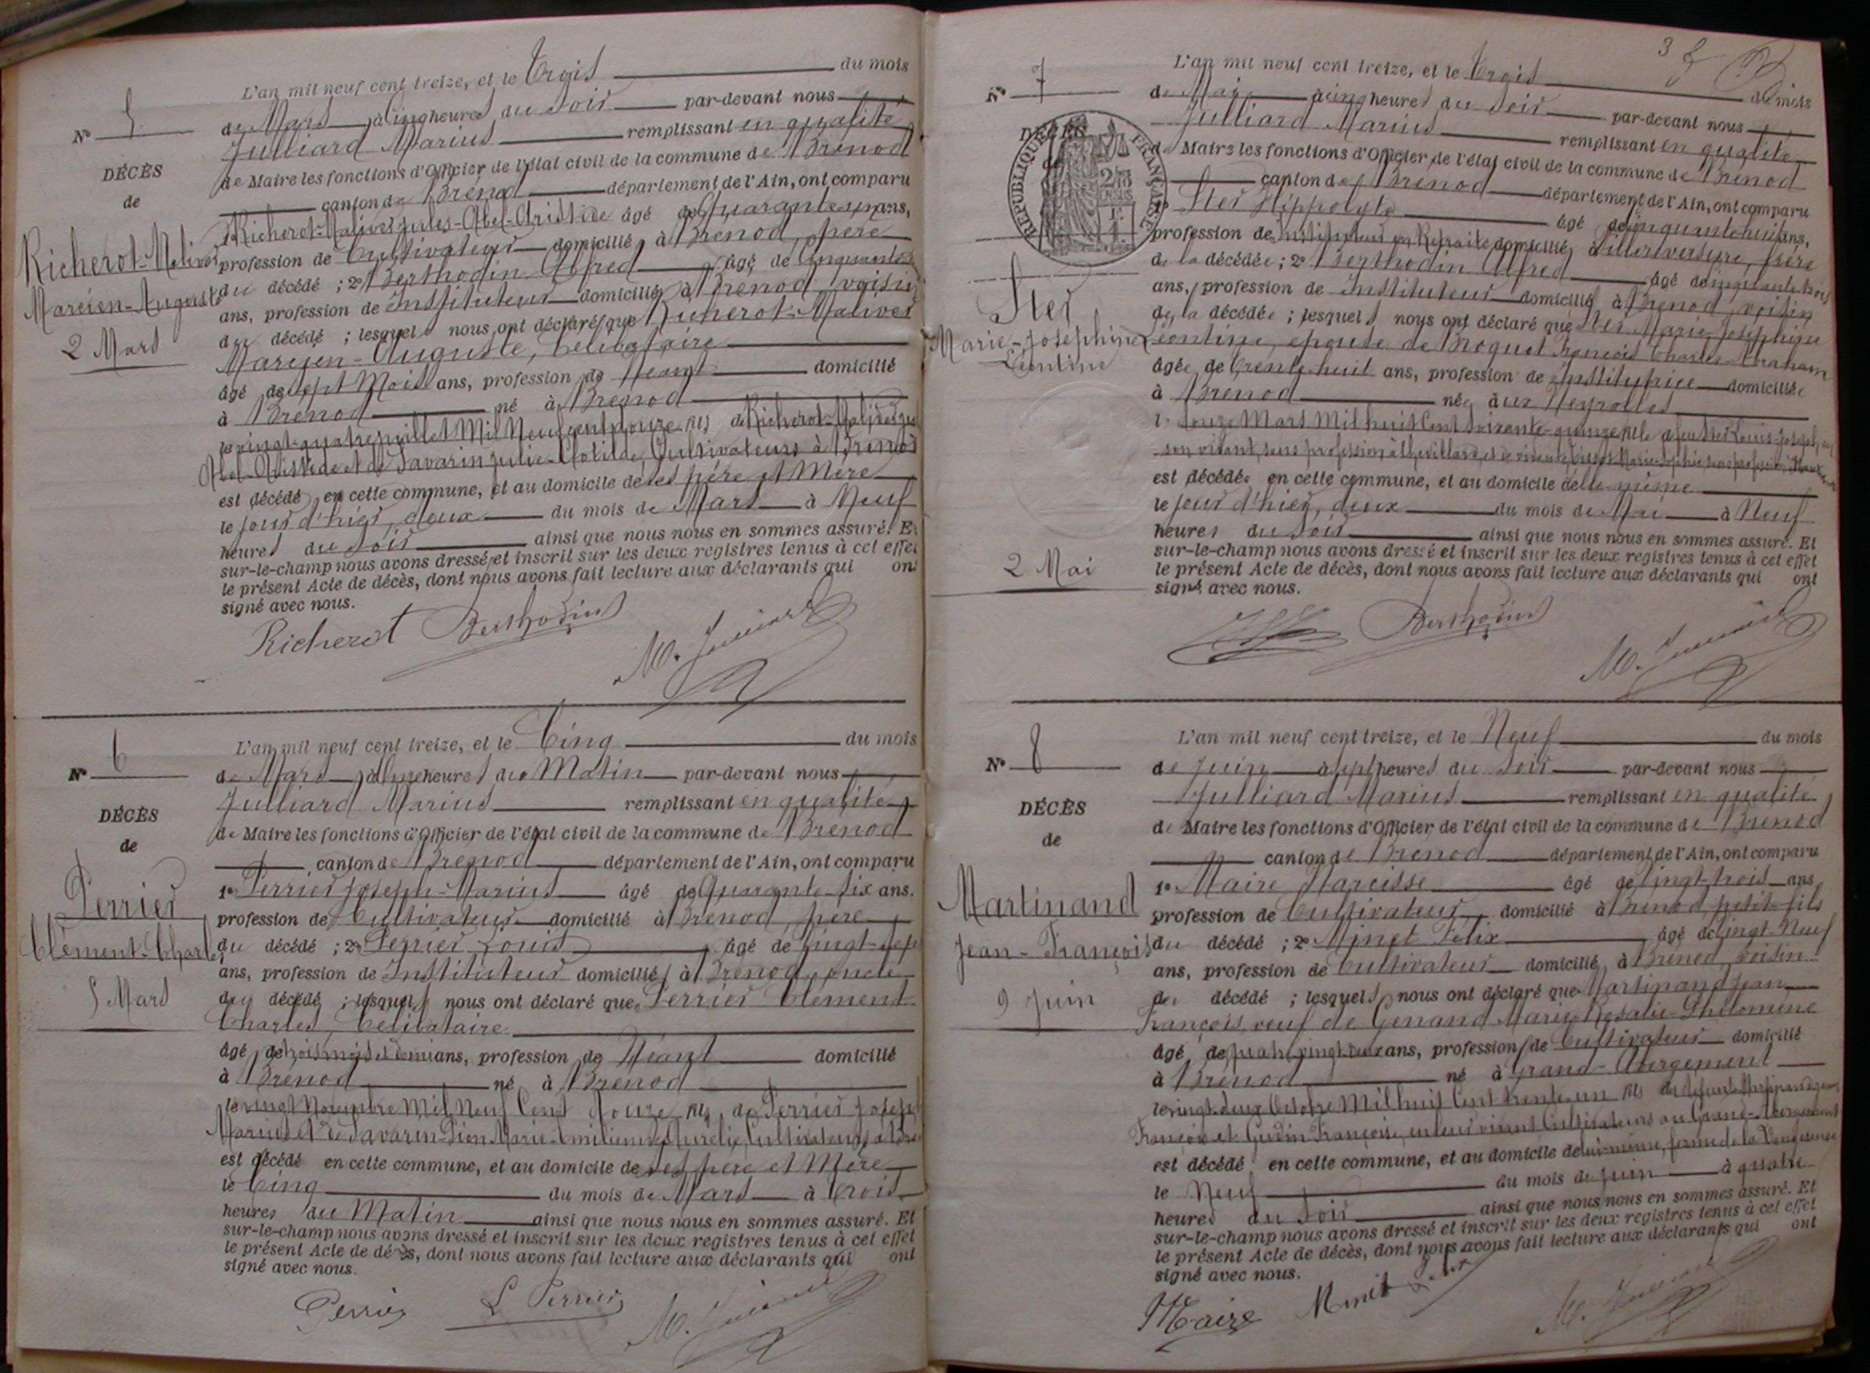 L'an mil neuf cent treize, et le Trois du mois
N° 5
de Mars à cinq heures du Soir par-devant nous
Julliard Marius remplissant en qualité
DÉCÈS
de Maire les fonctions d'Officier de l'état civil de la commune de Brénod
de
canton de Brénod département de l'Ain, ont comparu
1° Richerot-Malivet Jules-Abel-Aristide âgé de Quarante ans,
Richerot-Malivet
profession de Cultivateur domicilié à Brénod, père
Marcien-Auguste
du décédé ; 2° Berthodin Alfred âgé de cinquante
ans, profession de instituteur domicilié à Brénod, voisin
2 Mars
du décédé ; lesquels nous ont déclaré que Richerot-Malivet
Marcien-Auguste, Célibataire
âgé de sept Mois ans, profession de Néant domicilié
à Brénod né à Brénod
le vingt-quatre juillet Mil Neuf cent douze fils de Richerot-Malivet Jules
Abel-Aristide et de Savarin Julie-Clotilde, Cultivateurs à Brénod
est décédé en cette commune, et au domicile de ses père et Mère
le jour d'hier, deux du mois de Mars à Neuf
heures du Soir ainsi que nous nous en sommes assuré. Et
sur-le-champ nous avons dressé et inscrit sur les deux registres tenus à cet effet
le présent Acte de décès, dont nous avons fait lecture aux déclarants qui ont
signé avec nous.
Richerot Berthodin M. Julliard
L'an mil neuf cent treize, et le Cinq du mois
N° 6
de Mars à heures du Matin par-devant nous
Julliard Marius remplissant en qualité
DÉCÈS
de Maire les fonctions d'Officier de l'état civil de la commune de Brénod
de
canton de Brénod département de l'Ain, ont comparu
1° Perrier Joseph-Marius âgé de Quarante-six ans.
Perrier
profession de Cultivateur domicilié à Brénod, père
Clément-Charles
du décédé ; 2° Perrier Louis âgé de Vingt-sept
ans, profession de Instituteur domicilié à Brénod, oncle
5 Mars
du décédé ; lesquels nous ont déclaré que Perrier Clément
Charles, Célibataire
âgé de trois mois et demi ans, profession de Néant domicilié
à Brénod né à Brénod
le vingt Novembre Mil Neuf Cent douze fils de Perrier Joseph
Marius et de Savarin Marie-Emilienne Aurélie, Cultivateurs à Brénod
est décédé en cette commune, et au domicile de ses père et Mère
le Cinq du mois de Mars à trois
heures du Matin ainsi que nous nous en sommes assuré. Et
sur-le-champ nous avons dressé et inscrit sur les deux registres tenus à cet effet
le présent Acte de décès, dont nous avons fait lecture aux déclarants qui ont
signé avec nous.
Perrier L Perrier M. Julliard
3
L'an mil neuf cent treize, et le Trois du mois
N° 7
de Mai à cinq heures du Soir par-devant nous
Julliard Marius remplissant en qualité
DÉCÈS
de
RÉPUBLIQUE FRANÇAISE
de Maire les fonctions d'Officier de l'état civil de la commune de Brénod
canton de Brénod département de l'Ain, ont comparu
Ster Hippolyte âgé de cinquante huit ans,
profession de Instituteur en Retraite domicilié à Villereversure, frère
de la décédée ; 2° Berthodin Alfred âgé de cinquante trois
Ster
ans, profession de instituteur domicilié à Brénod, voisin
de la décédée ; lesquels nous ont déclaré que Ster Marie Joséphine
Marie-Joséphine
Léontine
Léontine, épouse de François Charles
âgée de trente huit ans, profession de Institutrice domiciliée
à Brénod née à Neyrolles
le douze Mars Mil huit Cent Soixante-quinze fille de feu Ster Louis-Joseph, en
son vivant, sans profession
est décédée en cette commune, et au domicile de elle même
le jour d'hier, deux du mois de Mai à Neuf
heures du Soir ainsi que nous nous en sommes assuré. Et
sur-le-champ nous avons dressé et inscrit sur les deux registres tenus à cet effet
2 Mai
le présent Acte de décès, dont nous avons fait lecture aux déclarants qui ont
signé avec nous.
Berthodin M. Julliard
L'an mil neuf cent treize, et le Neuf du mois
N° 8
de Juin à sept heures du Soir par-devant nous
Julliard Marius remplissant en qualité
DÉCÈS
de Maire les fonctions d'Officier de l'état civil de la commune de Brénod
de
canton de Brénod département de l'Ain, ont comparu
1° Maire Narcisse âgé de vingt-trois ans
Martinand
profession de Cultivateur domicilié à Brénod, petit-fils
Jean-François
du décédé ; 2° Minet Félix âgé de vingt-Neuf
ans, profession de Cultivateur domicilié à Brénod, voisin
9 Juin
du décédé ; lesquels nous ont déclaré que Martinand Jean
François, veuf de Genand Marie Rosalie Philomène
âgé de quatre vingt deux ans, profession de Cultivateur domicilié
à Brénod né à Grand-Abergement
le vingt-deux Octobre Mil huit Cent trente-un fils de
François et Gudin Françoise, en leur vivant Cultivateurs au Grand-Abergement
est décédé en cette commune, et au domicile de lui-même, ferme de la
le Neuf du mois de Juin à quatre
heures du Soir ainsi que nous nous en sommes assuré. Et
sur-le-champ nous avons dressé et inscrit sur les deux registres tenus à cet effet
le présent Acte de décès, dont nous avons fait lecture aux déclarants qui ont
signé avec nous.
Maire Minet M. Julliard